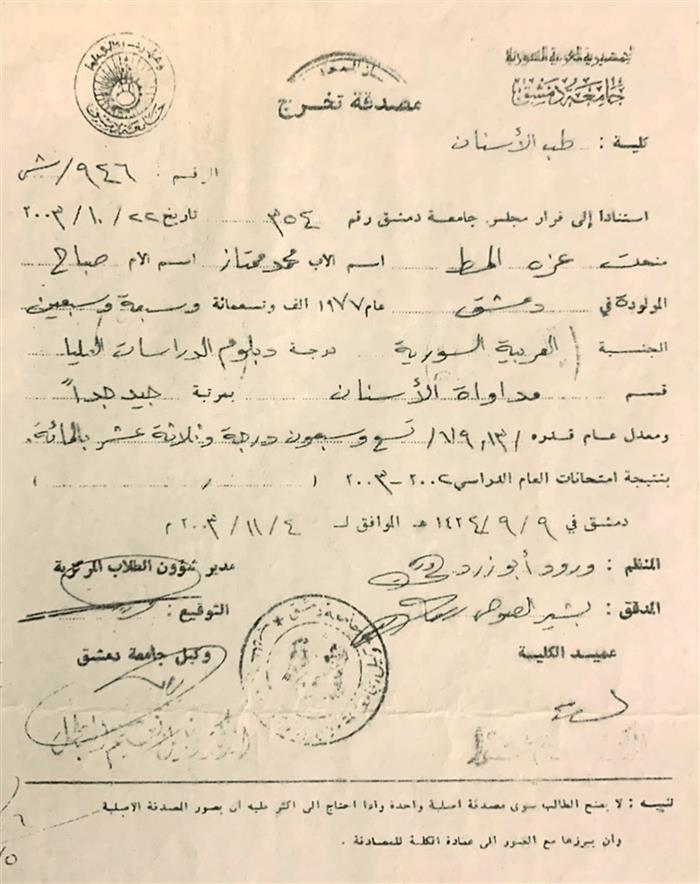 الجمهورية العربية السورية
جامعة دمشق
مصدقة تخرج
كلية : طب الأسنان
الرقم : ٩٤٦/ش
استناداً إلى قرار مجلس جامعة دمشق رقم ٣٥٤ تاريخ ٢٢/١٠/٢٠٠٣
منحت عزه الحط اسم الاب محمد ممتاز اسم الام صباح
المولودة في دمشق عام ١٩٧٧ الف وتسعمائة وسبعة وسبعين
الجنسية العربية السورية درجة دبلوم الدراسات العليا
قسم مداواة الأسنان بمرتبة جيد جداً
ومعدل عام قدره /٧٩,١٣/ تسع وسبعون درجة وثلاثة عشر بالمائة.
بنتيجة امتحانات العام الدراسي ٢٠٠٢-٢٠٠٣ ( / )
دمشق في ٩/٩/١٤٢٤ هـ الموافق لـ ٤/١١/٢٠٠٣ م
المنظم : ورود أبو زرد مدير شؤون الطلاب المركزية
المدقق : بشير الصوص التوقيع :
عميد الكلية وكيل جامعة دمشق
تنبيه : لا يمنح الطالب سوى مصدقة أصلية واحدة واذا احتاج الى اكثر عليه ان يصور المصدقة الاصلية
وأن يبرزها مع الصور الى عمادة الكلية للمصادقة .